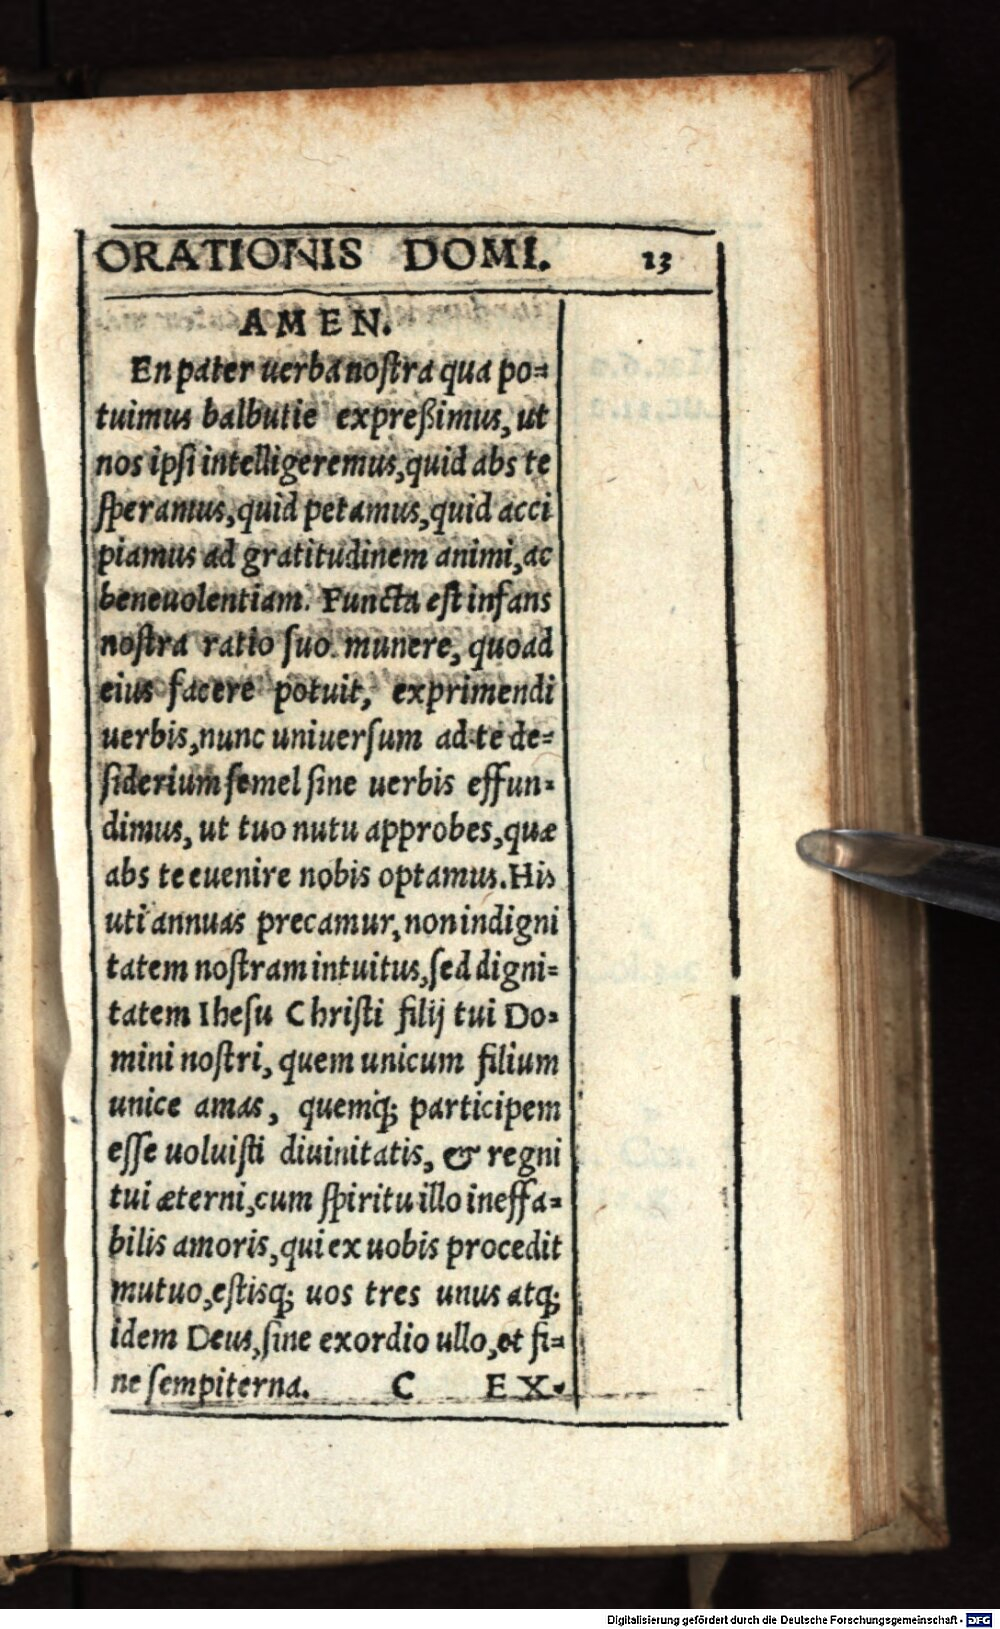 ORATIONIS DOMI. 13
AMEN.
En pater uerba noſtra qua po=
tuimus balbutie expreßimus, ut
nos ipſi intelligeremus, quid abs te
ſperamus, quid petamus, quid acci
piamus ad gratitudinem animi, ac
beneuolentiam. Functa eſt infans
noſtra ratio ſuo munere, quoad
eius facere potuit, exprimendi
uerbis, nunc uniuerſum ad te de=
ſiderium ſemel ſine uerbis effun=
dimus, ut tuo nutu approbes, quæ
abs te euenire nobis optamus. His
uti annuas precamur, non indigni
tatem noſtram intuitus, ſed digni=
tatem Iheſu Chriſti filij tui Do=
mini noſtri, quem unicum filium
unice amas, quemq; participem
eſſe uoluiſti diuinitatis, & regni
tui æterni, cum ſpiritu illo ineffa=
bilis amoris, qui ex uobis procedit
mutuo, eſtisq; uos tres unus atq;
idem Deus, ſine exordio ullo, et fi=
ne ſempiterna. C EX=
Digitalisierung gefördert durch die Deutsche Forschungsgemeinschaft - DFG